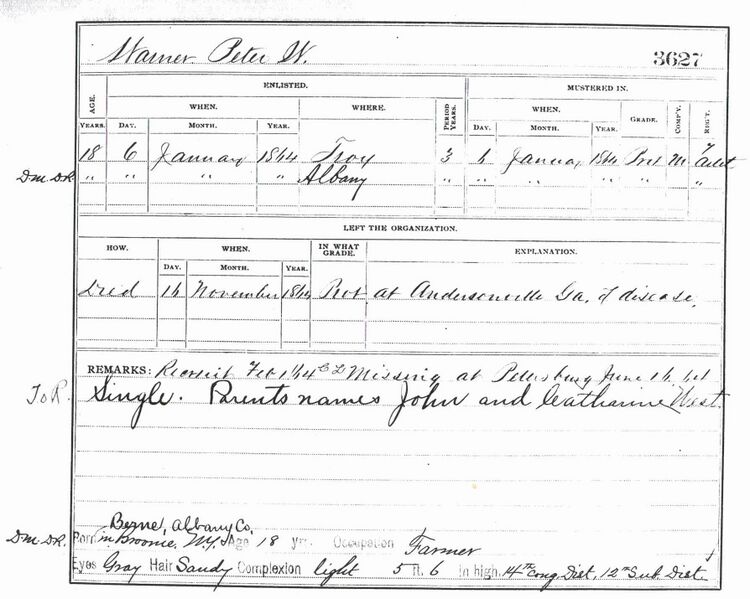 Warner Peter W. 3627
ENLISTED. MUSTERED IN.
AGE. WHEN. WHERE. PERIOD YEARS. WHEN. GRADE. COMP'Y. REG'T.
YEARS. DAY. MONTH. YEAR. DAY. MONTH. YEAR.
18 6 January 1864 Troy 3 6 January 1864 Pvt M 7 Artt
DM. DR. " " " " Albany " " " " " " "
LEFT THE ORGANIZATION.
HOW. WHEN. IN WHAT GRADE. EXPLANATION.
DAY. MONTH. YEAR.
Died 16 November 1864 Pvt at Andersonville Ga. of disease.
REMARKS: Recruit Feb 1864 Missing at Petersburg June 16. 64
To R. Single. Parents names John and Catharine West.
Berne, Albany Co,
DM. DR. Born in Broome, N.Y. Age 18 yrs. Occupation Farmer
Eyes Gray Hair Sandy Complexion light 5 ft. 6 in high. 14th Cong Dist, 12th Sub. Dist.